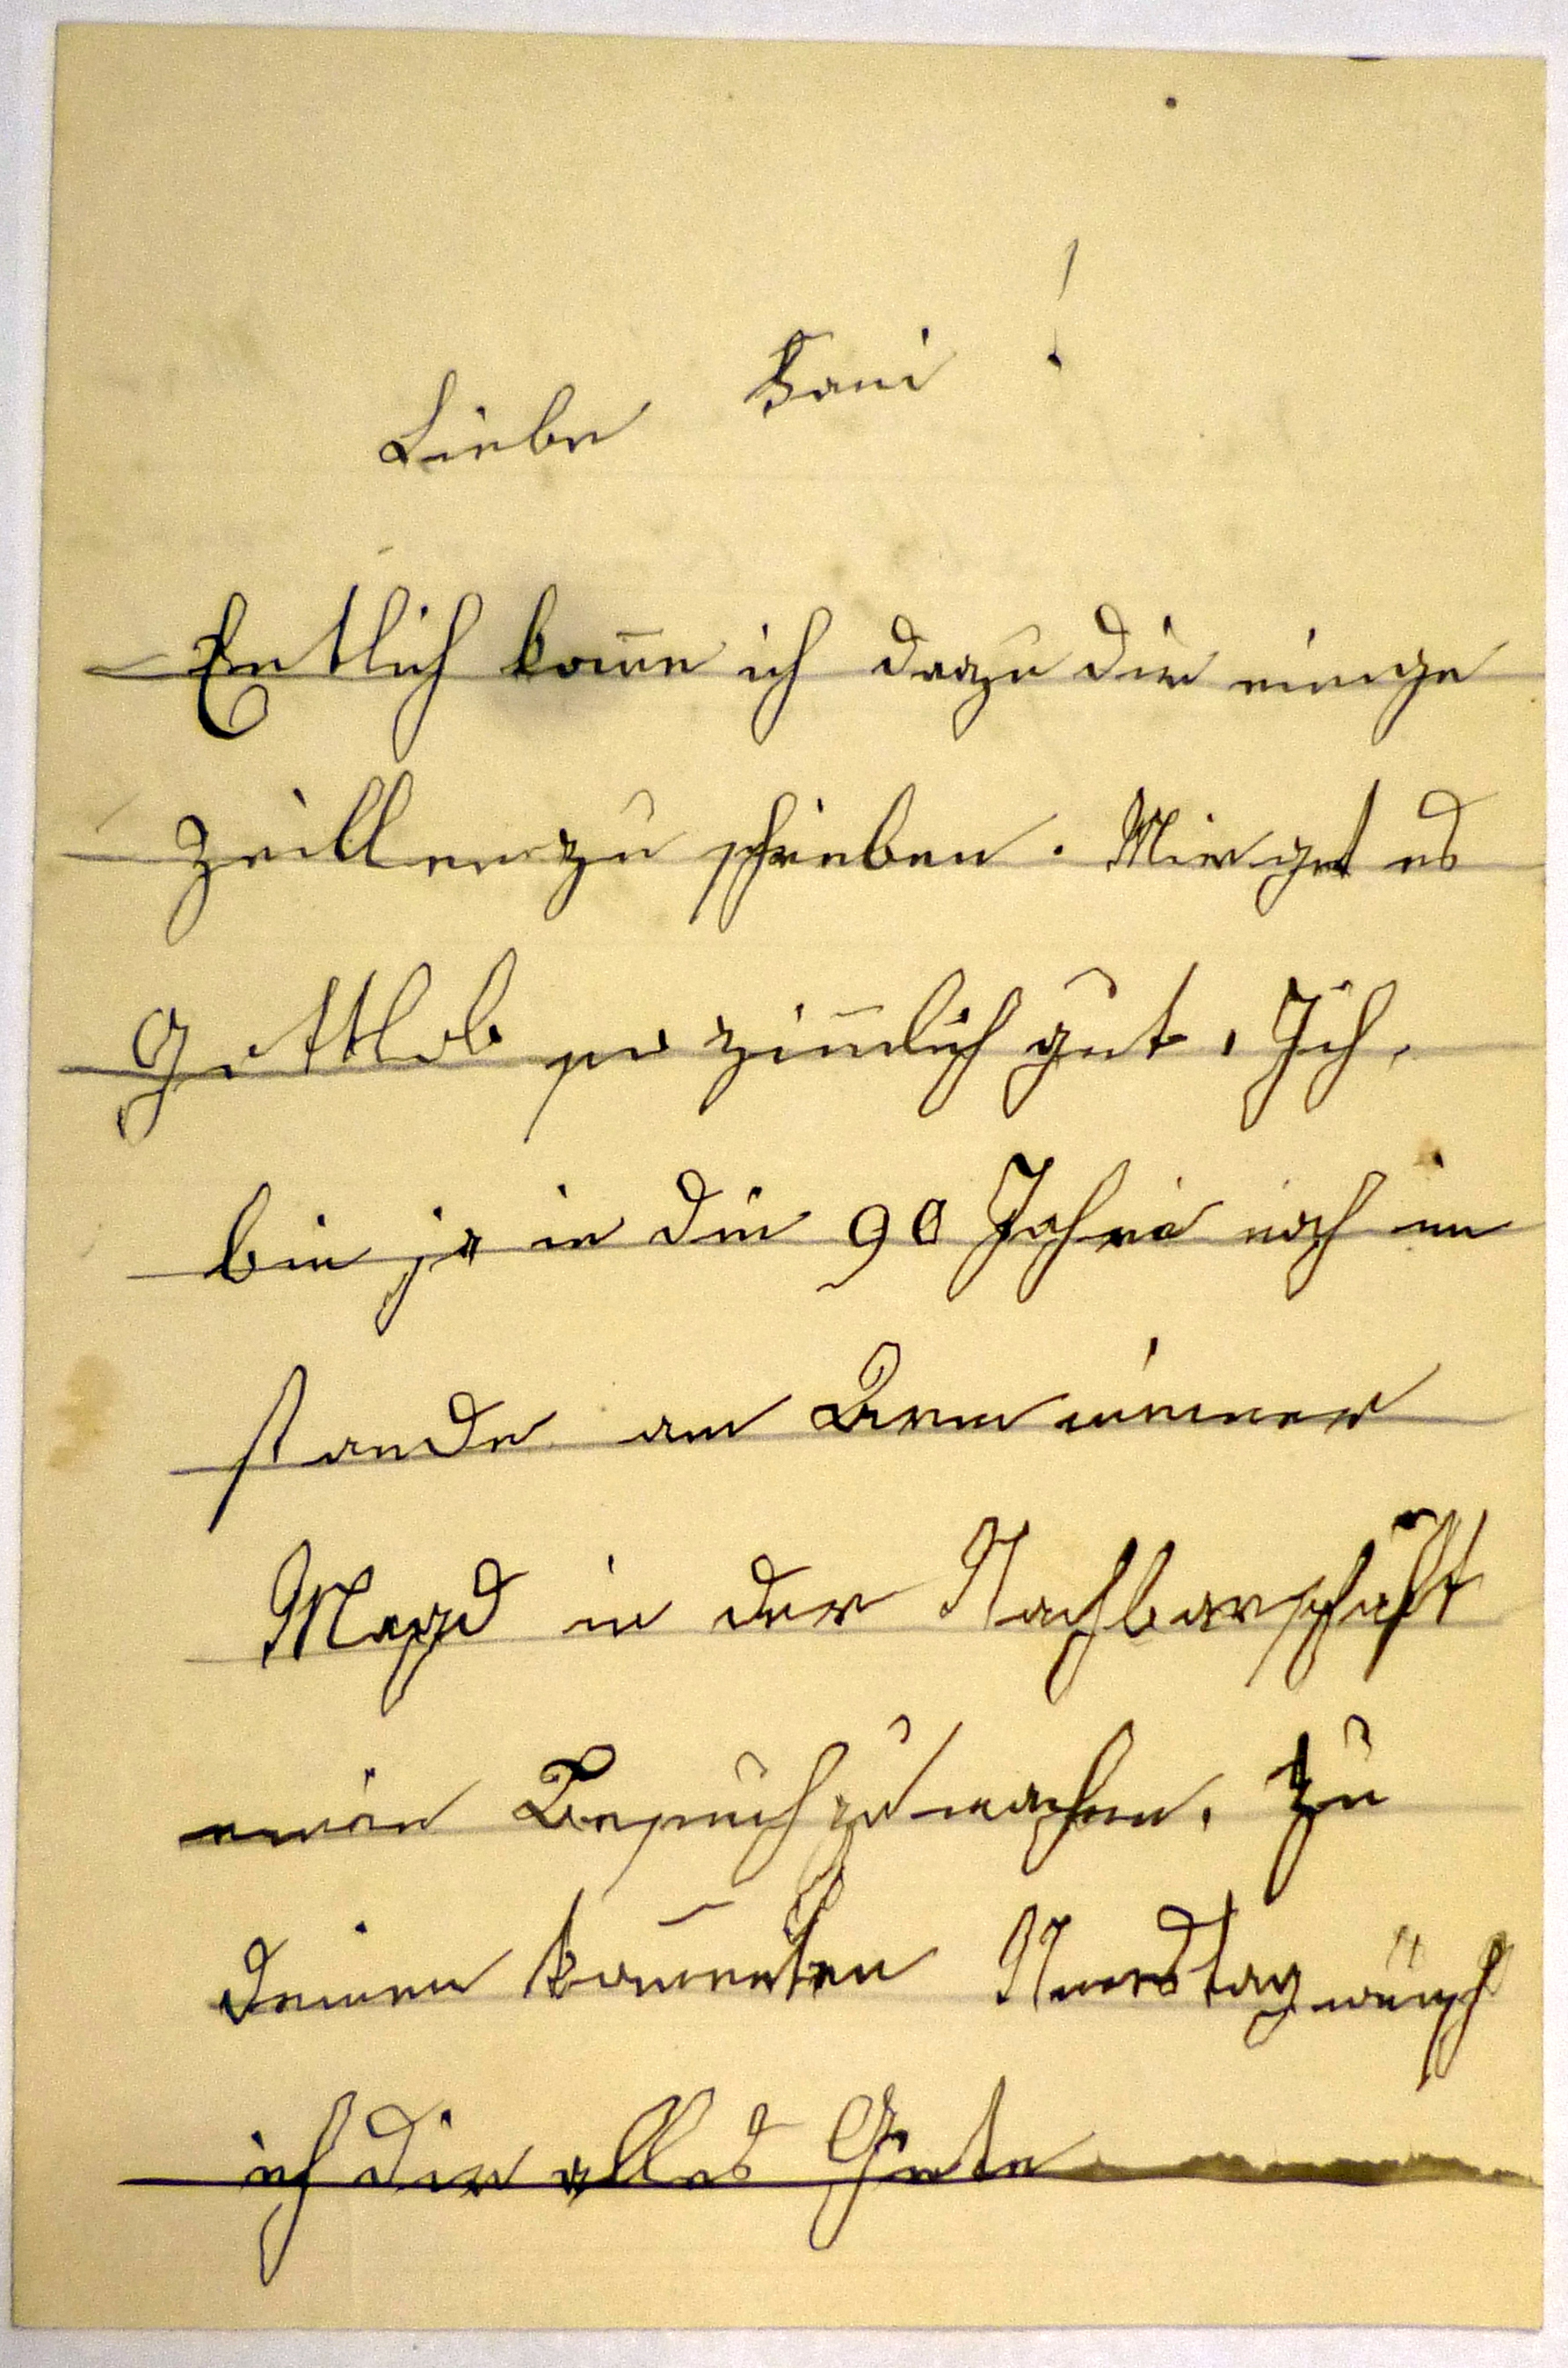 Liebe Fani !
Entlich kom̅e ich dazu dir einige
Zeillen zu schrieben. Mir get es
Gottlob so zim̅lich gut, Ich,
bin ja in die 90 Jahre noch im
stande am Arm meiner
Magd in der Nachbarschaft
einen Besuch zu machen. Zu
deinen kom̅enten Namstag wünsch
ich dir alles Gute